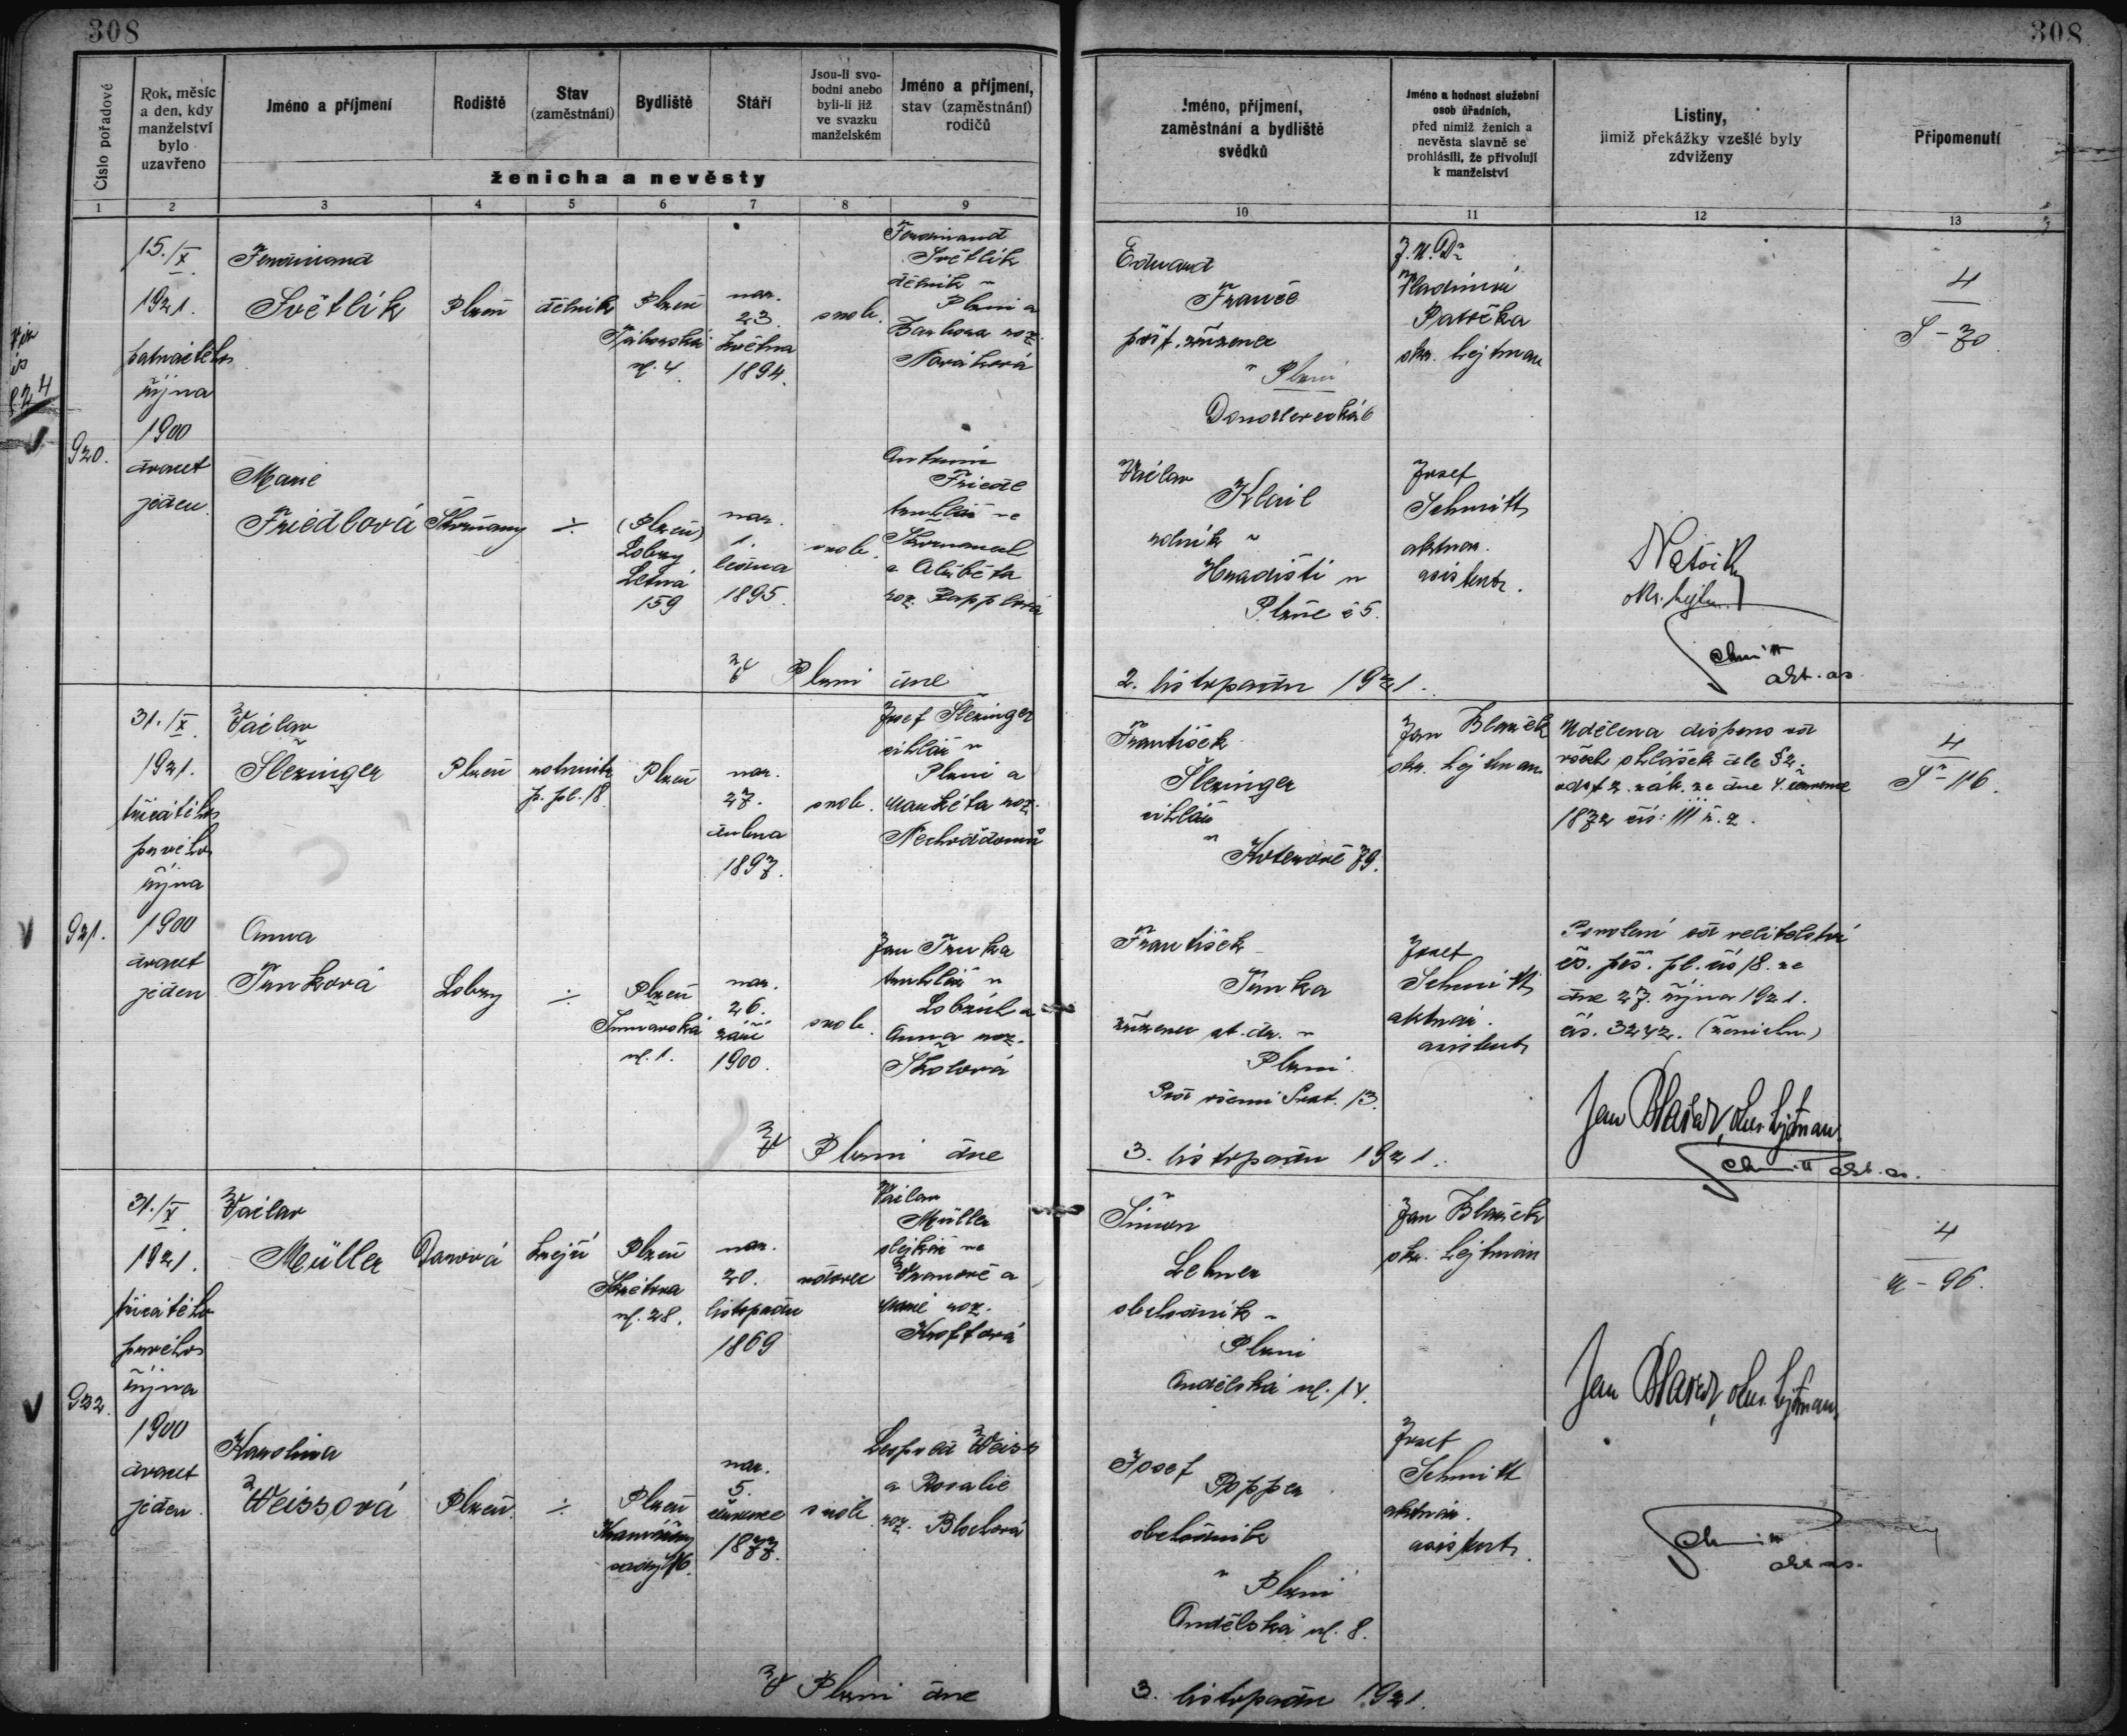 308
308
Číslo pořadové
Rok, měsíc
a den, kdy
manželství
bylo
uzavřeno
Jméno a příjmení
Rodiště
Stav
(zaměstnání)
Bydliště
Stáří
Jsou-li svo-
bodni anebo
byli-li již
ve svazku
manželském
Jméno a příjmení,
stav (zaměstnání)
rodičů
ženicha a nevěsty
Jméno, příjmení,
zaměstnání a bydliště
svědků
Jméno a hodnost služební
osob úřadních,
před nimiž ženich a
nevěsta slavně se
prohlásili, že přivolují
k manželství
Listiny,
jimiž překážky vzešlé byly
zdviženy
Připomenutí
1
2
3
4
5
6
7
8
9
10
11
12
13
920.
15./X.
1921.
patnáctého
října
1900
dvacet
jeden.
Ferdinand
Světlík
Plzeň
dělník
Plzeň
Táborská
ul. 4.
nar.
23.
května
1894.
svob.
Ferdinand
Světlík
dělník v
Plzni a
Barbora roz.
Nováková
Marie
Friedlová
÷
(Plzeň)
Lobzy
Letná
159
nar.
1.
ledna
1895.
svob.
Antonín
Friedl
truhlář ve
a Alžběta
roz. Papplová
Eduard
pošt. zřízenec
v Plzni
6
Václav
Klail
rolník v
Hradišti u
Plzně č 5.
J.U.Dr
Vladimír
Patočka
okr. hejtman
Josef
Schmitt
aktuár.
asistent.
okr. hejtm.
Schmitt
akt. as.
4
S - 70
V Plzni dne
2. listopadu 1921.
921.
31./X.
1921.
třicátého
prvého
října
1900
dvacet
jeden
Václav
Šlezinger
Plzeň
rotmistr
p. pl. 18
Plzeň
nar.
27.
dubna
1897.
svob.
Josef Šlezinger
cihlář v
Plzni a
Markéta roz.
Anna
Trnková
Lobzy
÷
Plzeň
ul. 1.
nar.
26.
září
1900.
svob.
Jan Trnka
truhlář v
Lobzích a
Anna roz.
František
Šlezinger
cihlář
v Koterově 79.
František
Trnka
zřízenec st. dr. v
Plzni
13.
Jan Blažek
okr. hejtman
Josef
Schmitt
aktuár.
asistent
Udělena dispens od
všech ohlášek dle § 2.
odst 2. zák. ze dne 4. července
1872 čís: 111 ř. z.
Povolení od velitelství
čs. pěš. pl. čís 18. ze
dne 27. října 1921.
čís. 3242. (ženichu)
Jan Blažek, okr. hejtman.
Schmitt akt. as.
4
Š - 116.
V Plzni dne
3. listopadu 1921.
922.
31./X.
1921.
třicátého
prvého
října
1900
dvacet
jeden.
Václav
Müller
Darová
krejčí
Plzeň
ul. 28.
nar.
20.
listopadu
1869
vdovec
Václav
Müller
ve
Vranově a
Marie roz.
Kroftová
Karolina
Weissová
Plzeň.
÷
Plzeň
sady 16.
nar.
5.
července
1877.
svob.
Leopold Weiss
a Rosalie
roz. Blochová
Šimon
Lehner
obchodník v
Plzni
Andělská ul. 14.
Josef
Popper
obchodník
v Plzni
Andělská ul. 8.
Jan Blažek
okr. hejtman
Josef
Schmitt
aktuár.
asistent.
Jan Blažek, okr. hejtman.
Schmitt
akt. as.
4
- 96.
V Plzni dne
3. listopadu 1921.